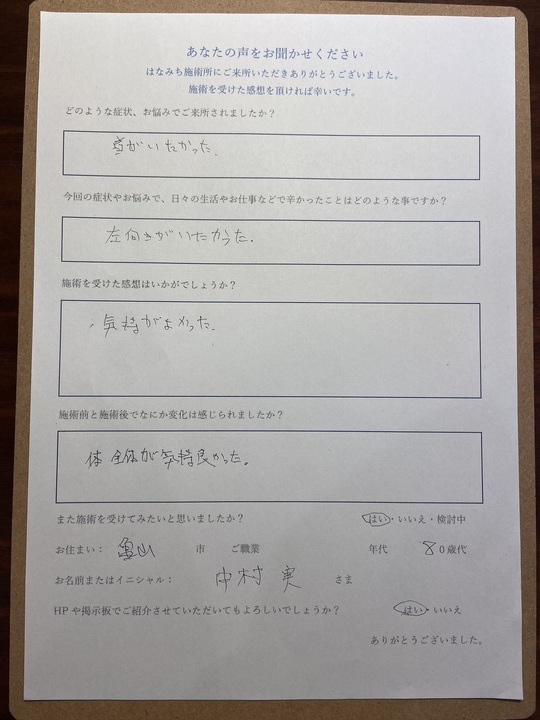 あなたの声をお聞かせください
はなみち施術所にご来所いただきありがとうございました。
施術を受けた感想を頂ければ幸いです。
どのような症状、お悩みでご来所されましたか？
がいたかった。
今回の症状やお悩みで、日々の生活やお仕事などで辛かったことはどのような事ですか？
左向きがいたかった.
施術を受けた感想はいかがでしょうか？
気持がよかった.
施術前と施術後でなにか変化は感じられましたか？
体全体が気持良かった。
また施術を受けてみたいと思いましたか？ はい・いいえ・検討中
お住まい： 亀山 市 ご職業 年代 80歳代
お名前またはイニシャル： 中村 実 さま
HPや掲示板でご紹介させていただいてもよろしいでしょうか？ はい・いいえ
ありがとうございました。